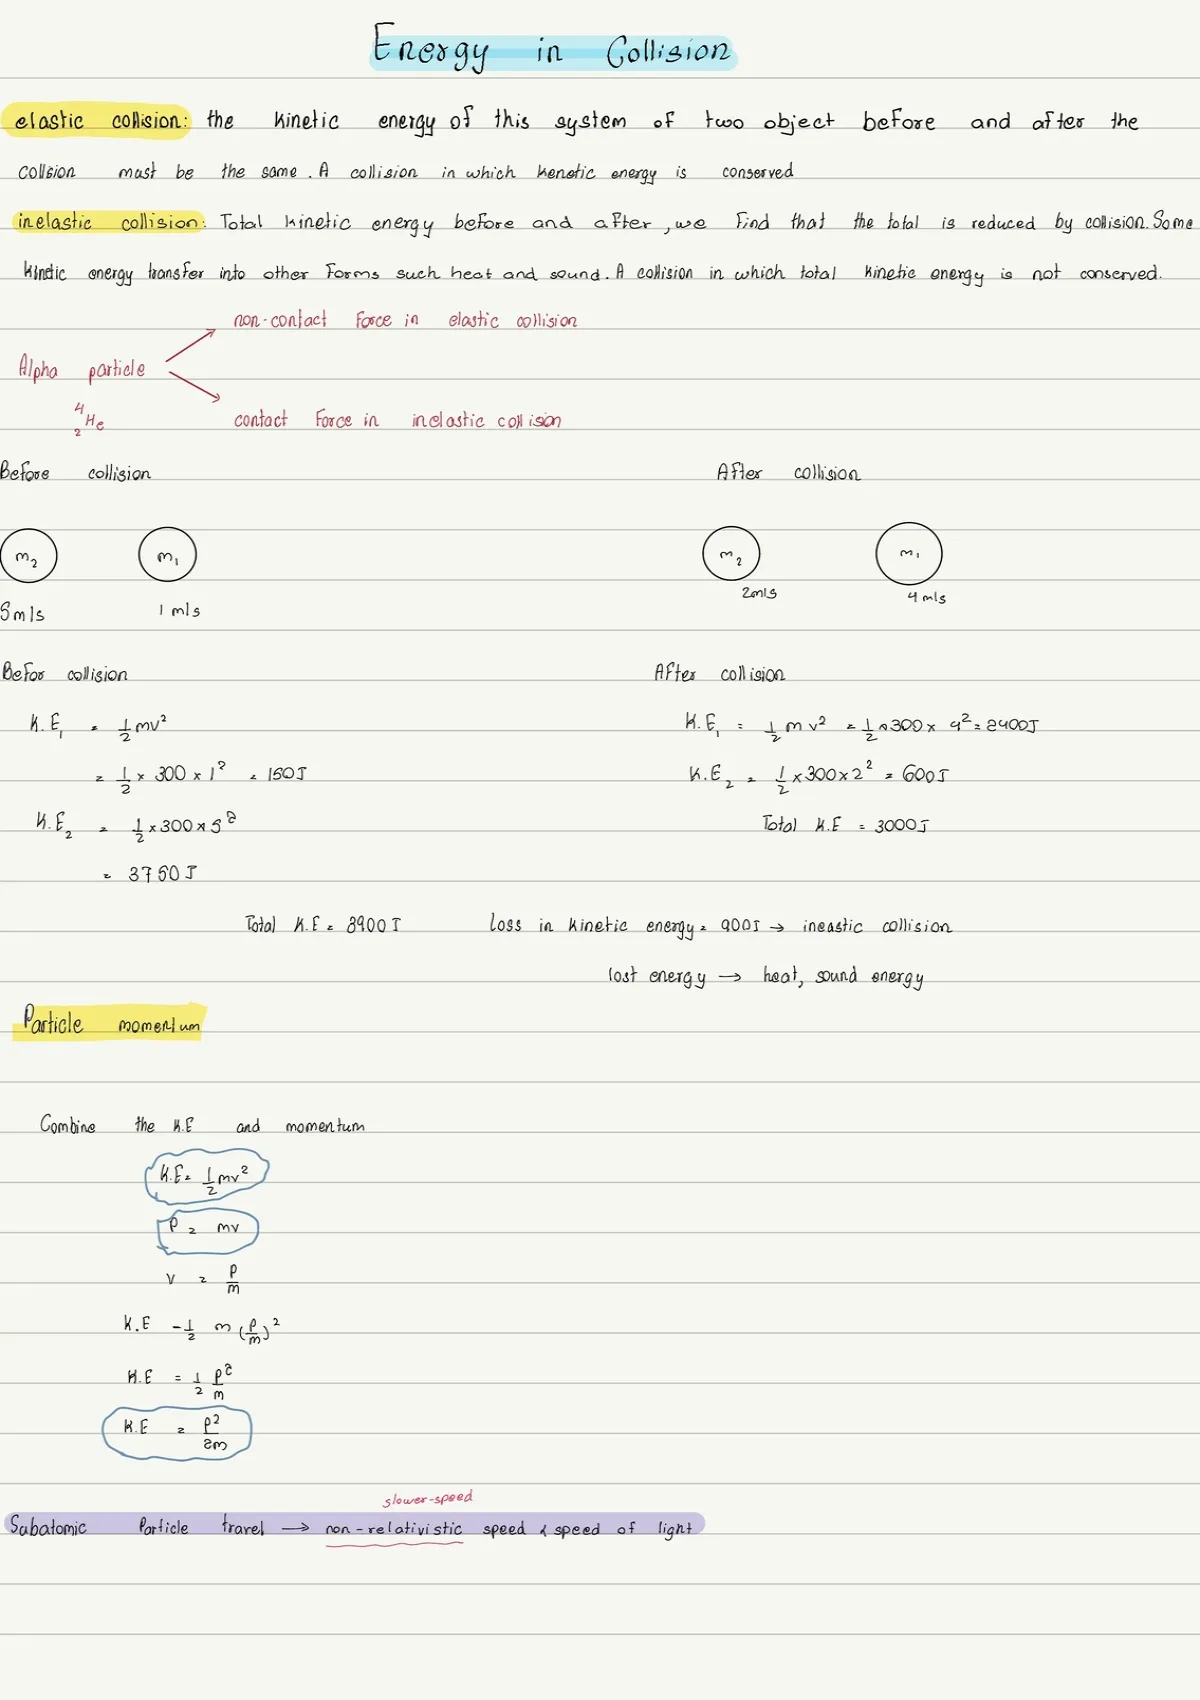 Energy in Collision
elastic collision: the kinetic energy of this system of two object before and after the
collsion must be the same. A collision in which kenetic energy is conserved
inelastic collision: Total kinetic energy before and after, we find that the total is reduced by collision. Some
kinetic energy transfer into other forms such heat and sound. A collision in which total kinetic energy is not conserved.
non-contact force in elastic collision
Alpha particle
⁴₂He
contact force in inelastic collision
Before collision After collision
m₂ m₁ m₂ m₁
5m/s 1 m/s 2m/s 4 m/s
Befor collision After collision
K.E₁ = 1/2 mv² K.E₁ = 1/2 m v² = 1/2 × 300 × 4² = 2400J
= 1/2 × 300 × 1² = 150J K.E₂ = 1/2 × 300 × 2² = 600J
K.E₂ = 1/2 × 300 × 5² Total K.E = 3000J
= 3750J
Total K.E = 3900J loss in kinetic energy = 900J → ineastic collision
lost energy → heat, sound energy
Particle momentum
Combine the K.E and momentum
K.E = 1/2 mv²
P = mv
v = P/m
K.E = 1/2 m (P/m)²
K.E = 1/2 P²/m
K.E = P²/2m
slower-speed
Subatomic Particle travel → non-relativistic speed & speed of light